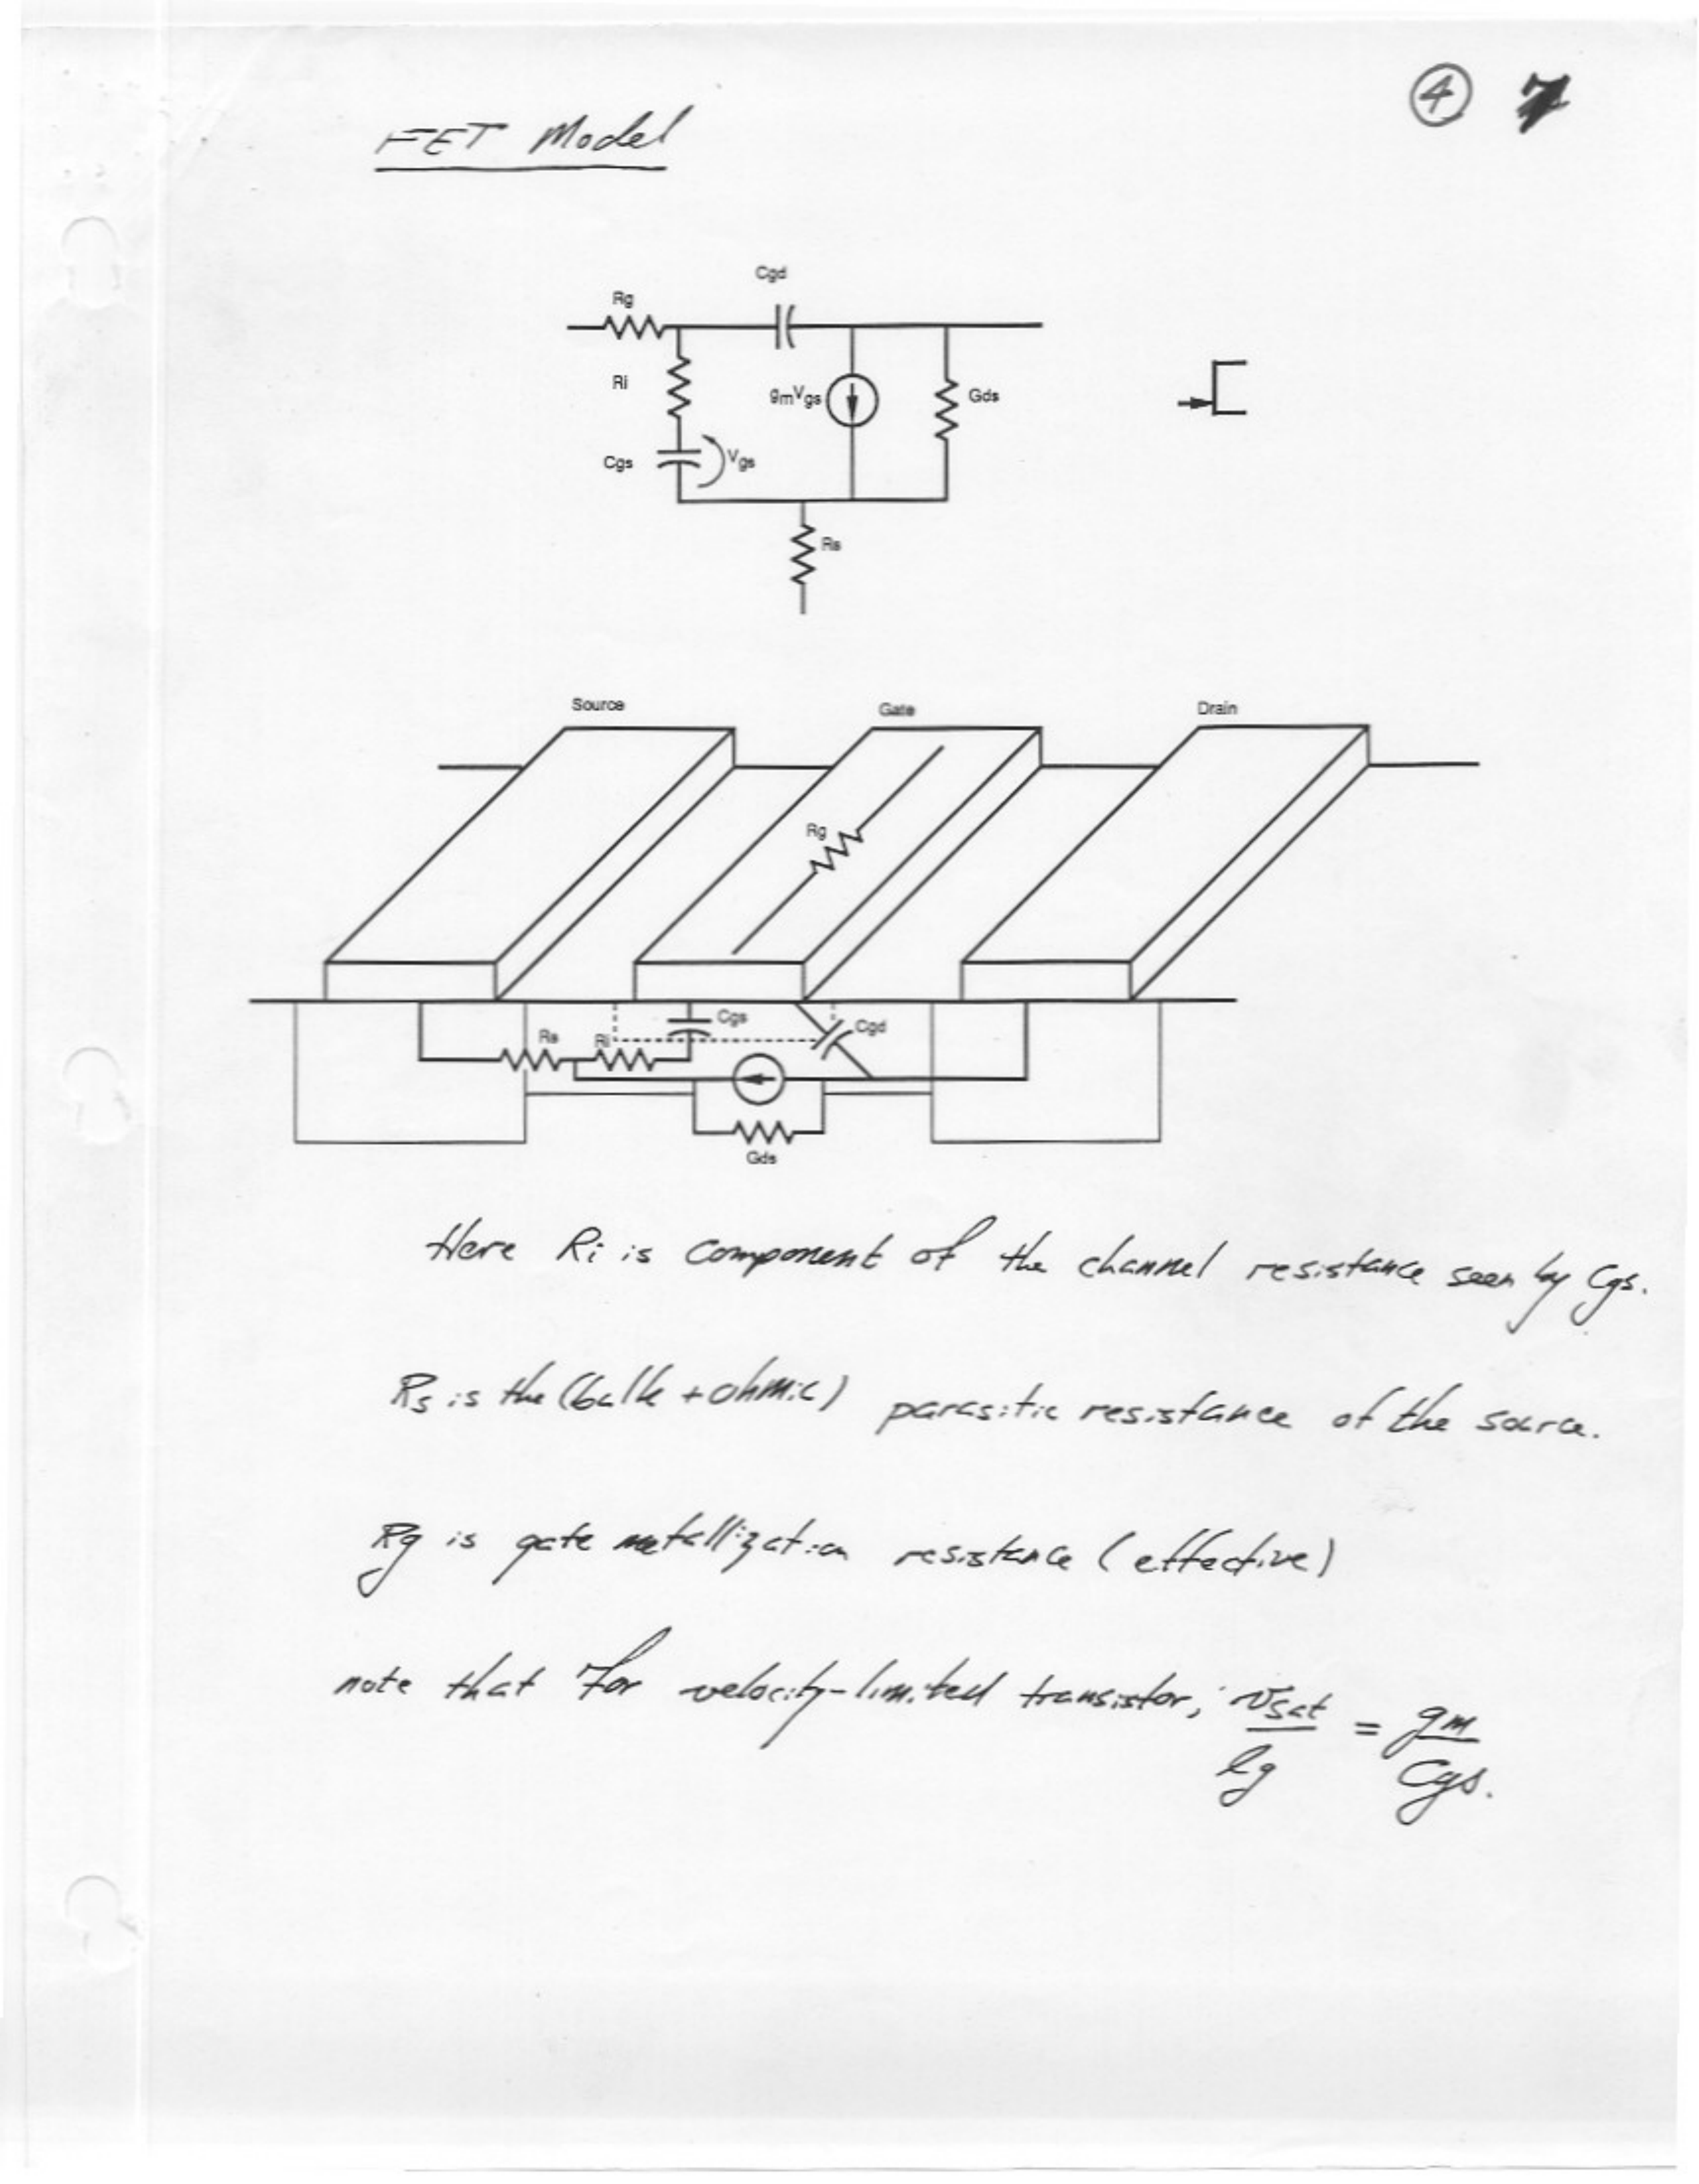 ④
FET Model
Cgd
Rg
Ri
gmVgs
Gds
Cgs
Vgs
Rs
Source
Gate
Drain
Rg
Cgs
Cgd
Rs
Ri
Gds
Here Ri is component of the channel resistance seen by Cgs.
Rs is the (bulk + ohmic) parasitic resistance of the source.
Rg is gate metallization resistance (effective)
note that for velocity-limited transistor, vsat/lg = gm/Cgs.